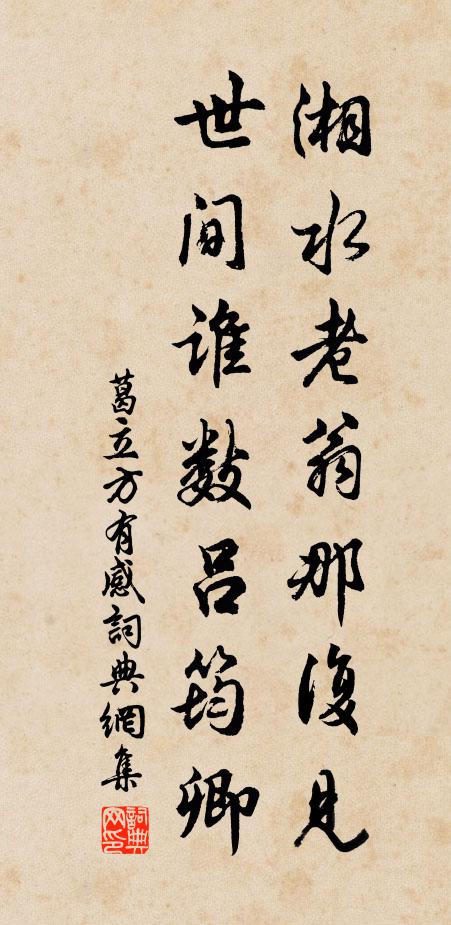 湘水老翁那復見
世间誰数吕筠卿
葛立方有感詞典網集
詞典网印